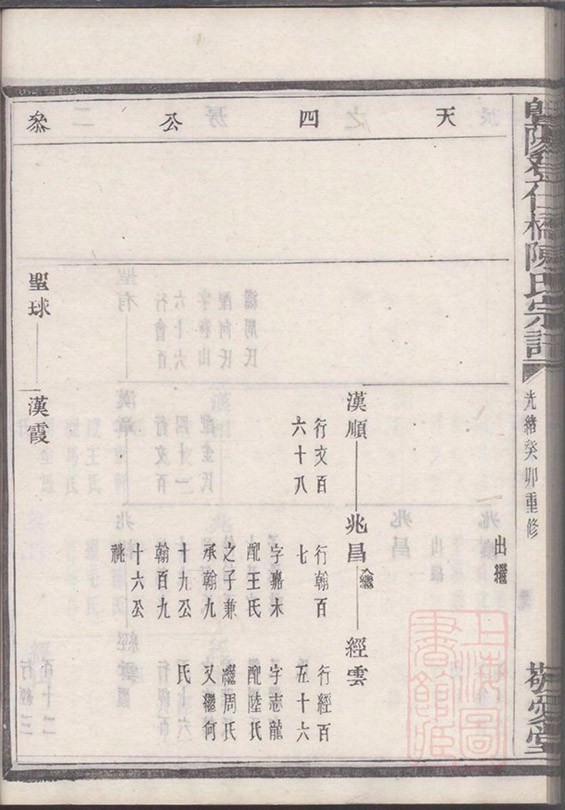 暨陽登仕橋陳氏宗譜
光緒癸卯重修
敬愛堂
天四公叅
出繼
漢順
行文百
六十八
兆昌
入繼
行翰百
七
字嘉木
配王氏
之子兼
承翰九
十九公
翰百九
十六公
祧
經雲
行經百
五十六
字志龍
配陸氏
繼周氏
又繼何
氏
聖球
漢霞
上海圖書館藏